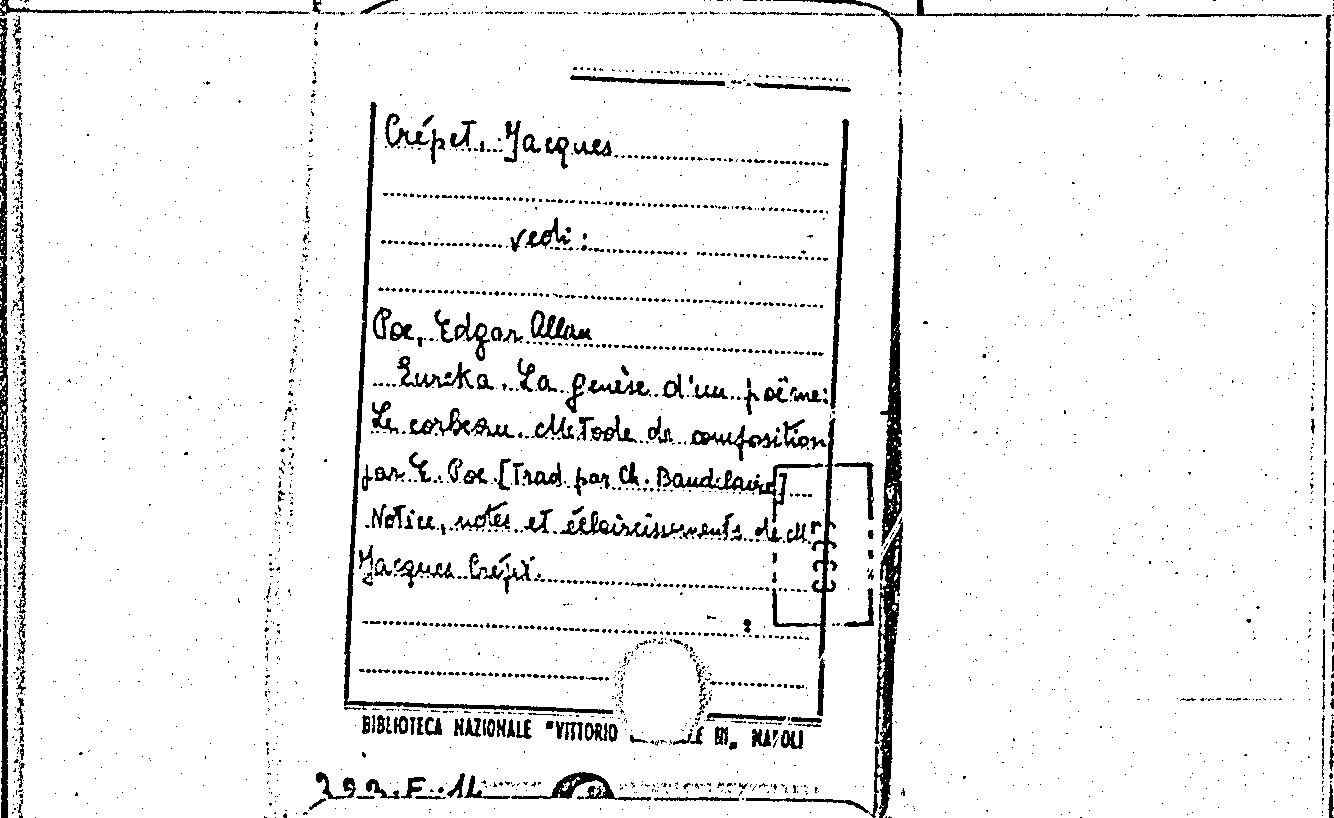 Crépet, Jacques
vedi:
Poe, Edgar Allan
Eureka. La genèse d'un poëme:
Le corbeau. Metode de composition
par E. Poe [Trad par Ch. Baudelaire]
Notice, notes et éclaircissements de Mr
Jacques Crépet.
BIBLIOTECA NAZIONALE "VITTORIO III„ NAPOLI